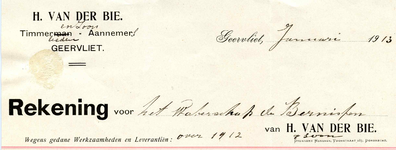 H. VAN DER BIE.
en Zoon
Timmerman - Aannemers
GEERVLIET.
Geervliet, Januari 1913
Rekening voor het Waterschap de Bernisse
van H. VAN DER BIE.
& Zoon
Wegens gedane Werkzaamheden en Leverantiën: over 1912